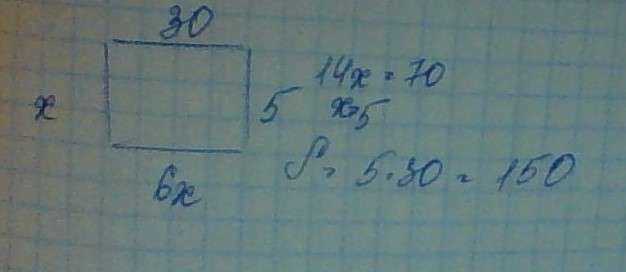 30
14x = 70
x 5 x=5
6x S = 5·30 = 150